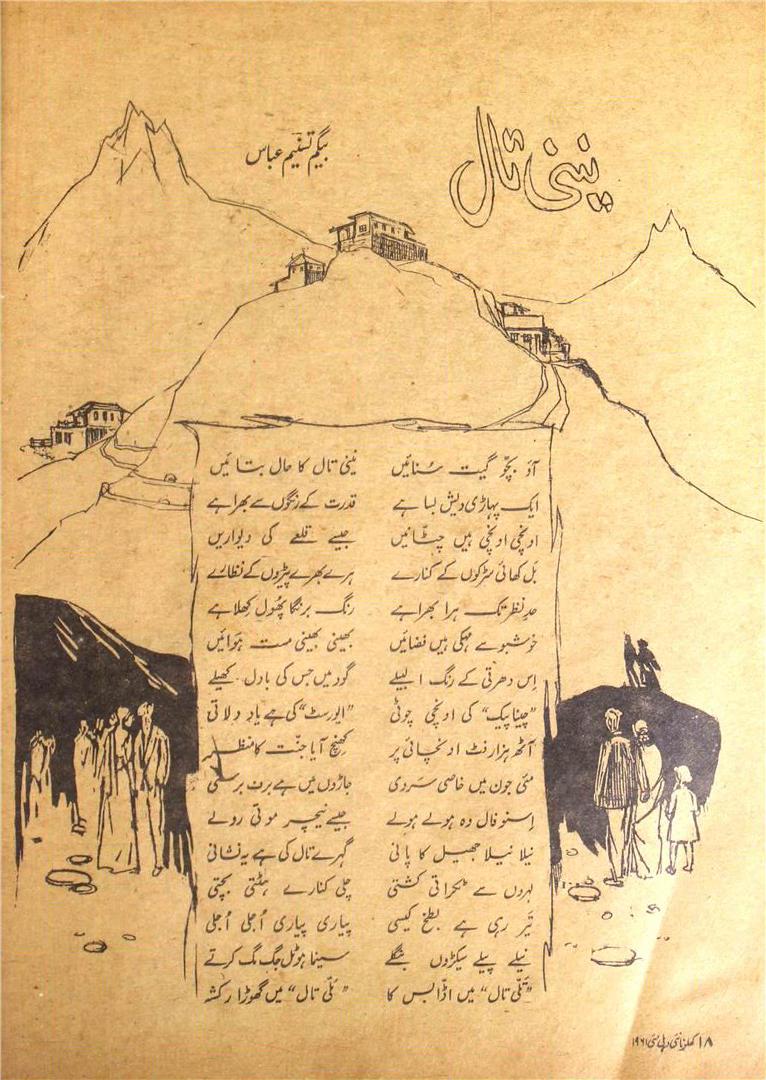 نینی تال
بیگم تسنیم عباس
آؤ بچّو گیت سُنائیں نینی تال کا حال بتائیں
ایک پہاڑی دیش بسا ہے قدرت کے رنگوں سے بھرا ہے
اونچی اونچی ہیں چٹّانیں جیسے قلعے کی دیواریں
بَل کھائی سڑکوں کے کنارے ہرے بھرے پیڑوں کے نظارے
حدِ نظر تک ہرا بھرا ہے رنگ برنگا پھُول کِھلا ہے
خوشبو سے مہکی ہیں فضائیں بھینی بھینی مست ہَوائیں
اِس دھرتی کے رنگ البیلے گود میں جس کی بادل کھیلے
"چیناپیک" کی اونچی چوٹی "ایورسٹ" کی ہے یاد دلاتی
آٹھ ہزار فٹ اونچائی پر کھنچ آیا جنّت کا منظر
مئی جون میں خاصی سَردی جاڑوں میں ہے برف برستی
اِسنو فال وہ ہولے ہولے جیسے نیچر موتی رولے
نیلا نیلا جھیل کا پانی گہرے تال کی ہے یہ نشانی
لہروں سے ٹکراتی کشتی چلی کنارے ہٹتی بچتی
تَیر رہی ہے بطخ کیسی پیاری پیاری اُجلی اُجلی
نیلے پیلے سیکڑوں بنگلے سینما ہوٹل جگ مگ کرتے
"تَلّی تال" میں اڈّا بس کا "مَلّی تال" میں گھوڑا رکشہ
۱۸ کھلونا نئی دہلی مئی ۱۹۶۱ء